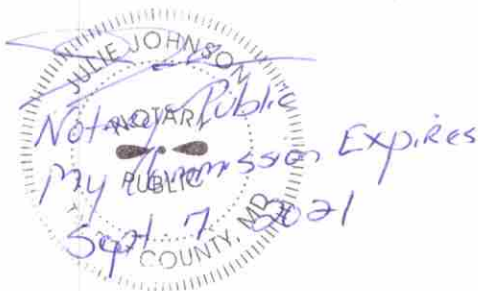 JULIE JOHNSON
NOTARY
PUBLIC
COUNTY, MD
Notary Public
My Commission Expires
Sept 7 2021